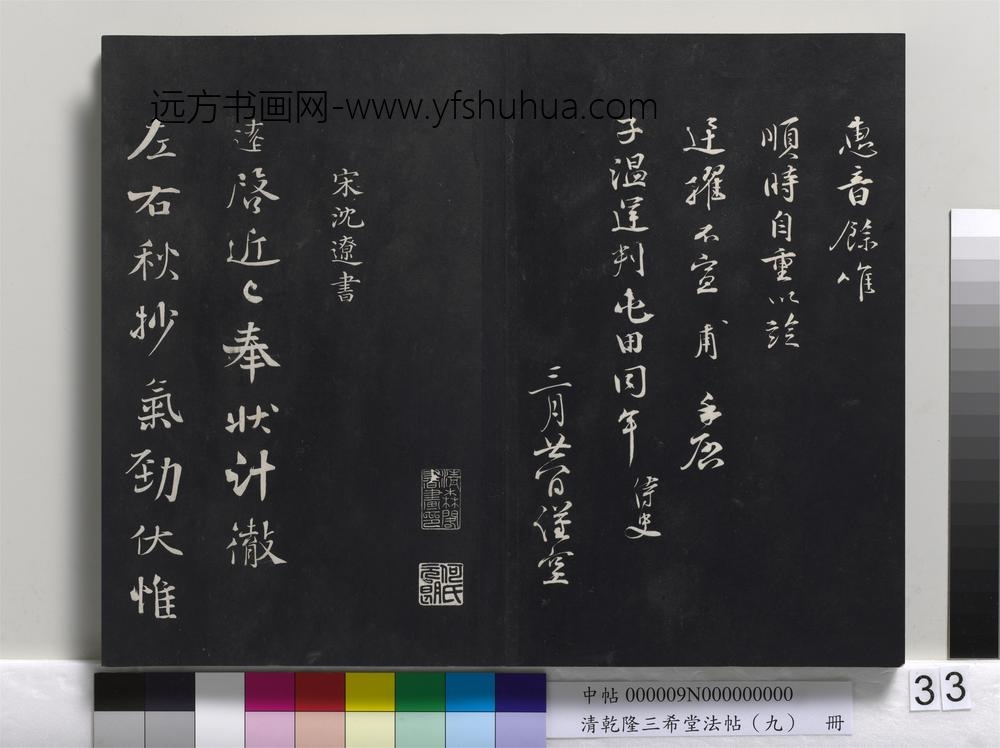 远方书画网-www.yfshuhua.com
惠音餘惟
順時自重以
擢不宣 甫 手啓
子温運判屯田同年 侍史
三月廿日謹空
清森閣書畫印
何氏元朗
宋沈遼書
遼啓近々奉狀計徹
左右秋抄氣勁伏惟
中帖 000009N000000000
清乾隆三希堂法帖(九) 冊
33